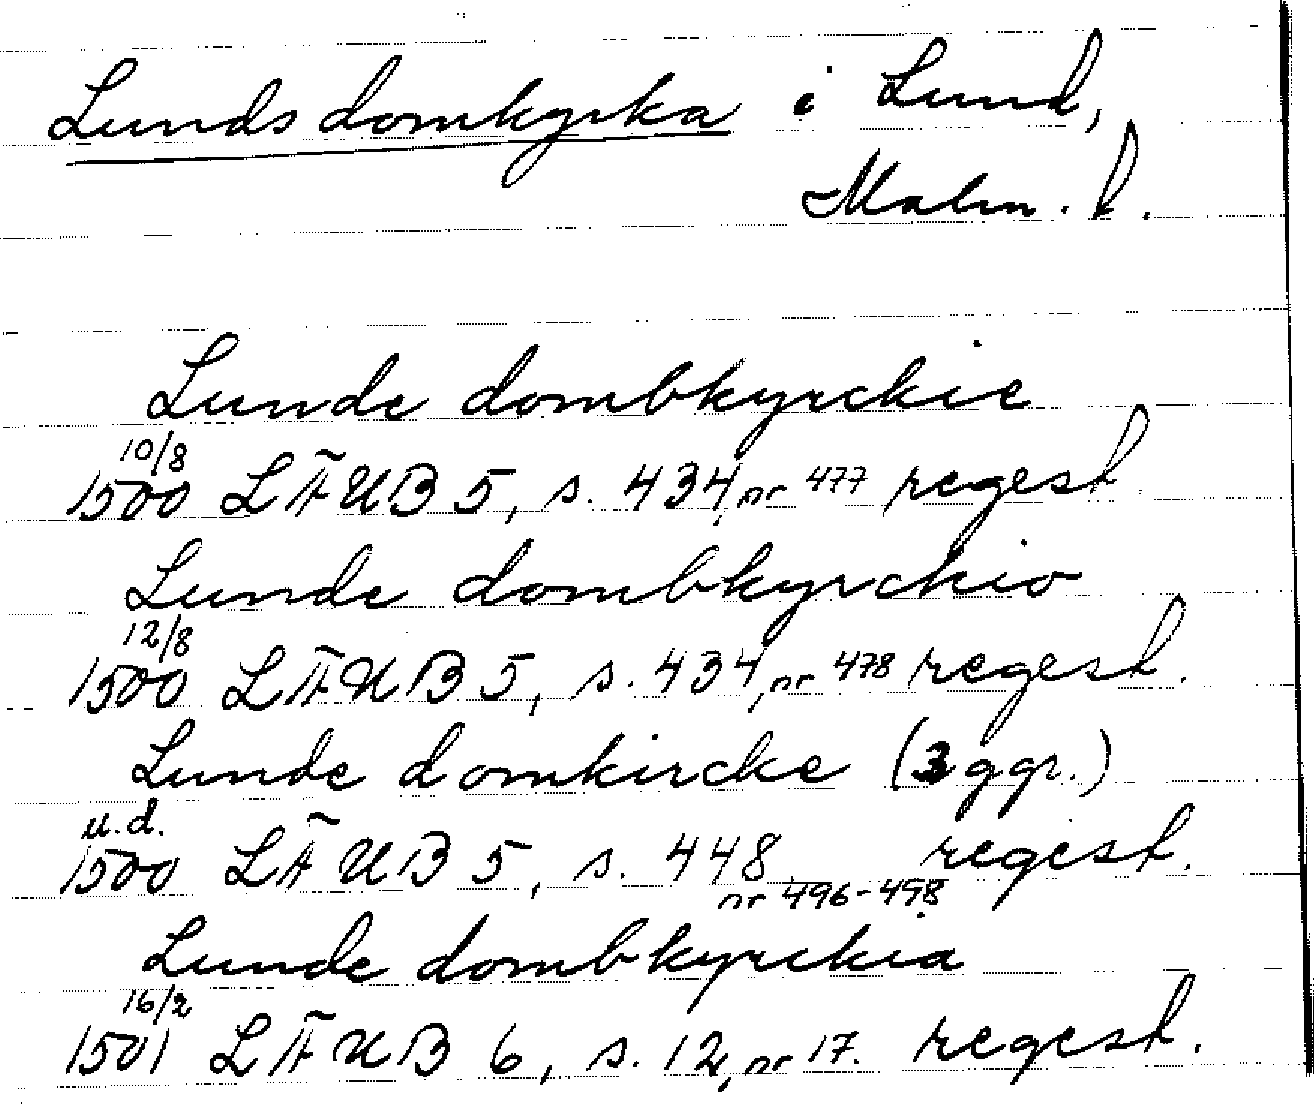 Lunds domkyrka i Lund,
Malm. l.
Lunde dombkyrckie
10/8
1500 LÄUB 5, s. 434, nr 477 regest
Lunde dombkyrckio
12/8
1500 LÄUB 5, s. 434, nr 478 regest.
Lunde domkircke (3 ggr.)
u.d.
1500 LÄUB 5, s. 448 regest.
nr 496-498
Lunde dombkyrckia
16/2
1501 LÄUB 6, s. 12, nr 17. regest.